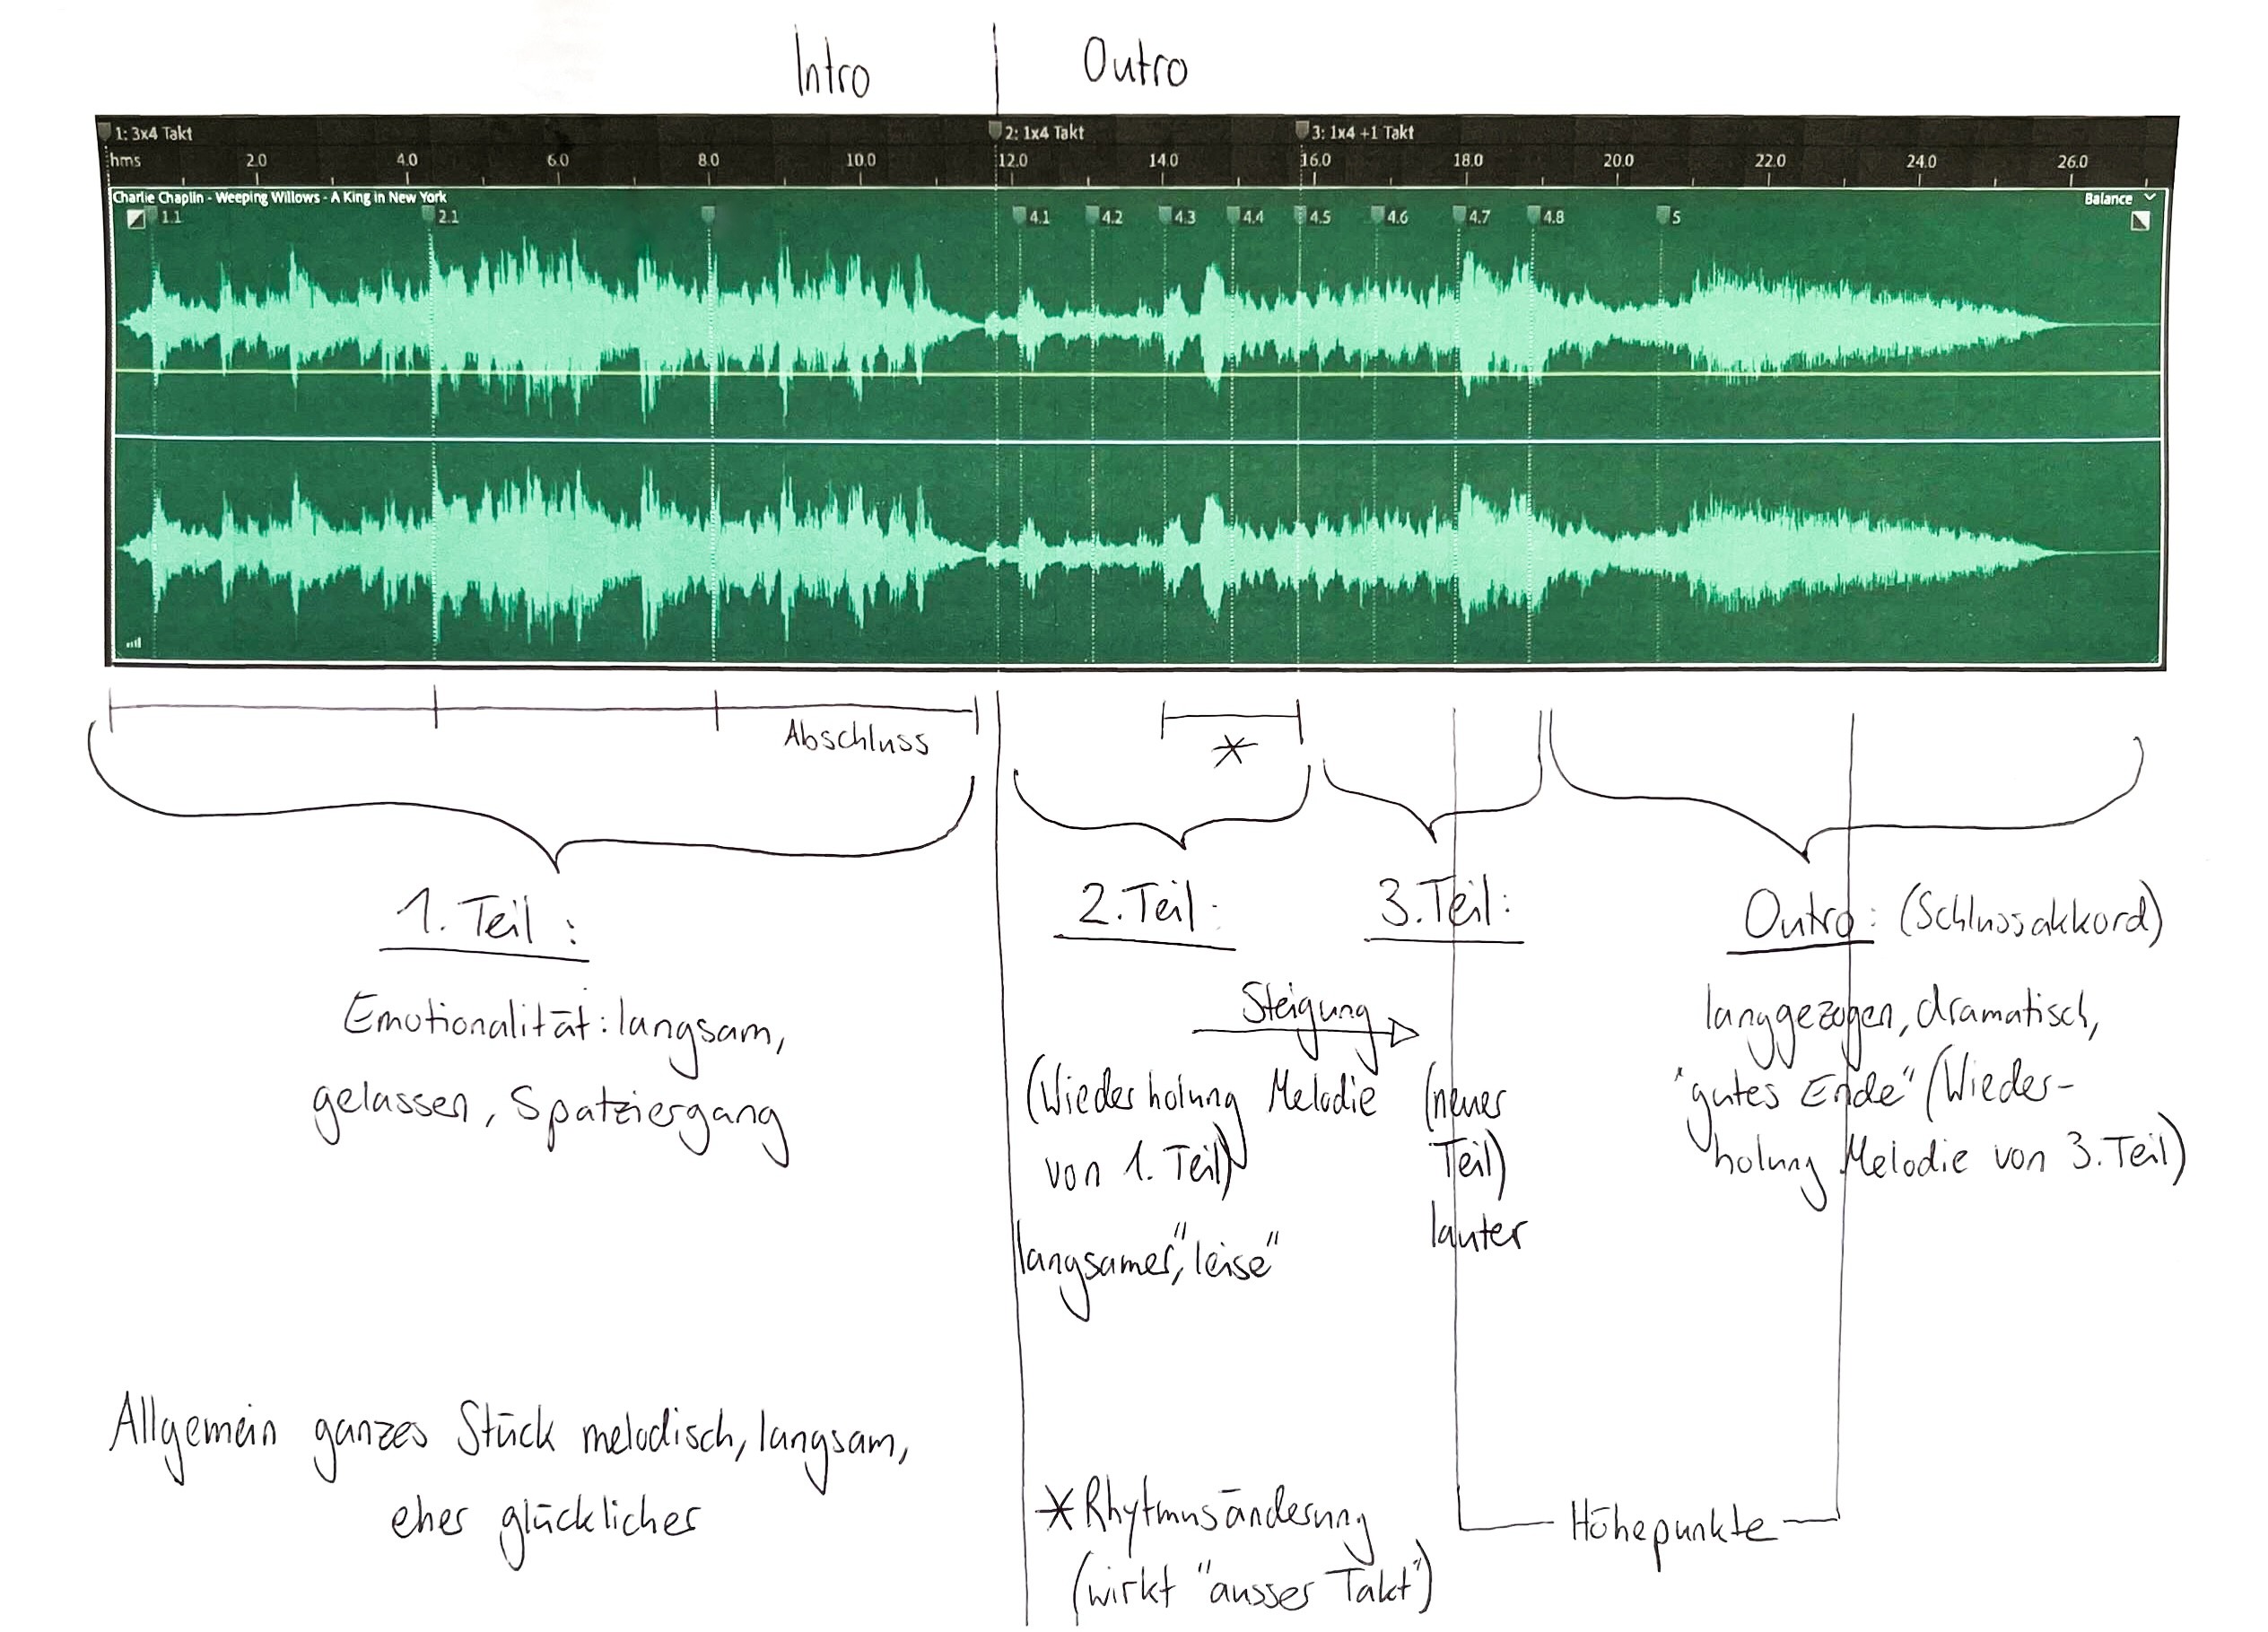 Intro
Outro
1: 3x4 Takt
2: 1x4 Takt
3: 1x4 +1 Takt
hms 2.0 4.0 6.0 8.0 10.0 12.0 14.0 16.0 18.0 20.0 22.0 24.0 26.0
Charlie Chaplin - Weeping Willows - A King in New York
Balance
1.1 2.1 4.1 4.2 4.3 4.4 4.5 4.6 4.7 4.8 5
Abschluss
*
1. Teil :
Emotionalität: langsam,
gelassen, Spatziergang
2. Teil:
Steigung
(Wiederholung Melodie
von 1. Teil)
langsamer, "leise"
3. Teil:
(neuer
Teil)
lauter
Outro: (Schlussakkord)
langgezogen, dramatisch,
"gutes Ende" (Wieder-
holung Melodie von 3. Teil)
Allgemein ganzes Stück melodisch, langsam,
eher glücklicher
* Rhytmusänderung
(wirkt "ausser Takt")
Höhepunkte